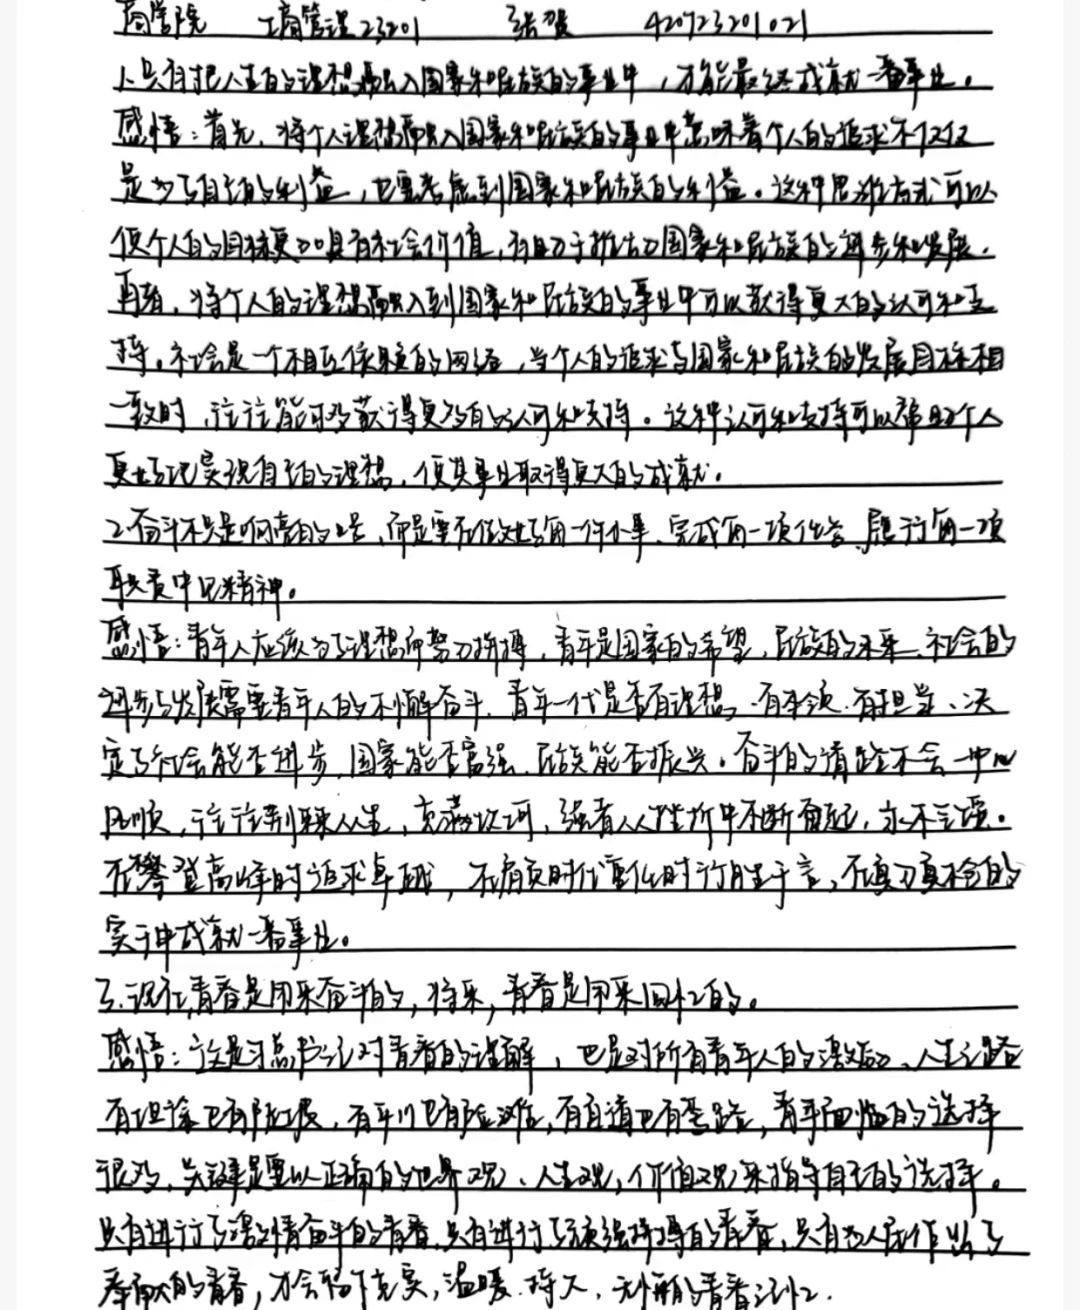 商学院 工商管理23201 张贺 420723201021
1.只有把人生的理想融入国家和民族的事业中,才能最终成就一番事业。
感悟:首先,将个人理想融入国家和民族的事业中意味着个人的追求不仅仅
是为了自己的利益,也要考虑到国家和民族的利益。这种思维方式可以
使个人的目标更加具有社会价值,有助于推动国家和民族的进步和发展。
再者,将个人的理想融入到国家和民族的事业中可以获得更大的认可和支
持。社会是一个相互依赖的网络,当个人的追求与国家和民族的发展目标相
一致时,往往能够获得更多的认可和支持。这种认可和支持可以帮助个人
更好地实现自己的理想,使其事业取得更大的成就。
2.奋斗不只是响亮的口号,而是要在做好每一件小事、完成每一项任务、履行每一项
职责中见精神。
感悟:青年人应该为了理想而努力拼搏,青年是国家的希望,民族的未来,社会的
进步与发展需要青年人的不懈奋斗,青年一代是否有理想、有本领、有担当、决
定了社会能否进步,国家能否富强,民族能否振兴。奋斗的道路不会一帆
风顺,往往荆棘丛生,充满坎坷,强者从挫折中不断奋起,永不言退。
在攀登高峰时追求卓越,在肩负时代重任时行胜于言,在真刀真枪的
实干中成就一番事业。
3.现在,青春是用来奋斗的,将来,青春是用来回忆的。
感悟:这是习总书记对青春的理解,也是对所有青年人的激励、人生之路
有坦途也有陡坡,有平川也有险滩,有直道也有弯路,青年面临的选择
很多,关键是要以正确的世界观、人生观,价值观来指导自己的选择。
只有进行了激情奋斗的青春,只有进行了顽强拼搏的青春,只有为人民作出了
奉献的青春,才会留下充实,温暖、持久、无悔的青春记忆.